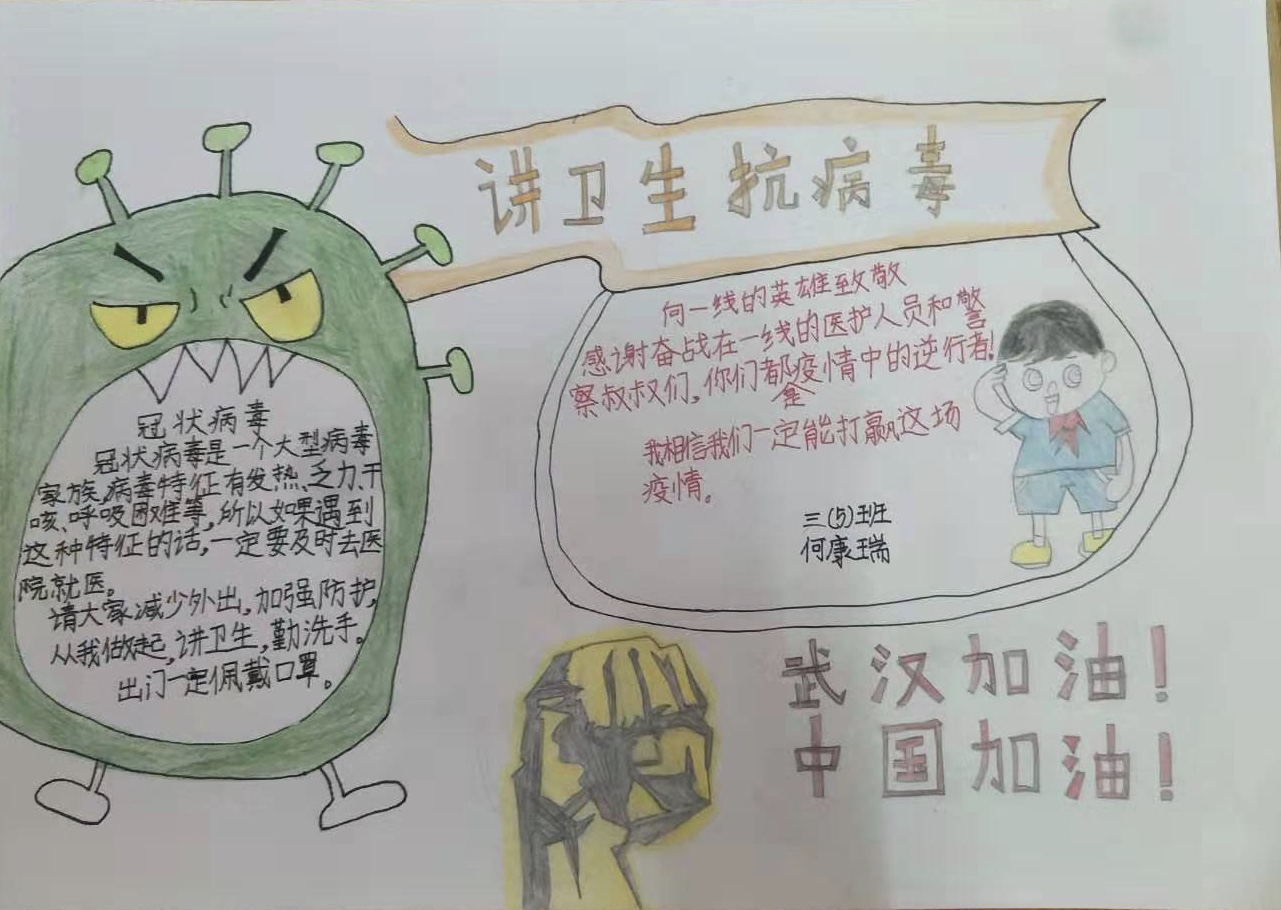 讲卫生抗病毒
冠状病毒
冠状病毒是一个大型病毒
家族,病毒特征有发热、乏力、干
咳、呼吸困难等,所以如果遇到
这种特征的话,一定要及时去医
院就医。
请大家减少外出,加强防护,
从我做起,讲卫生,勤洗手。
出门一定佩戴口罩。
向一线的英雄致敬
感谢奋战在一线的医护人员和警
察叔叔们,你们都是疫情中的逆行者!
我相信我们一定能打赢这场
疫情。
三(5)班
何康瑞
武汉加油!
中国加油!